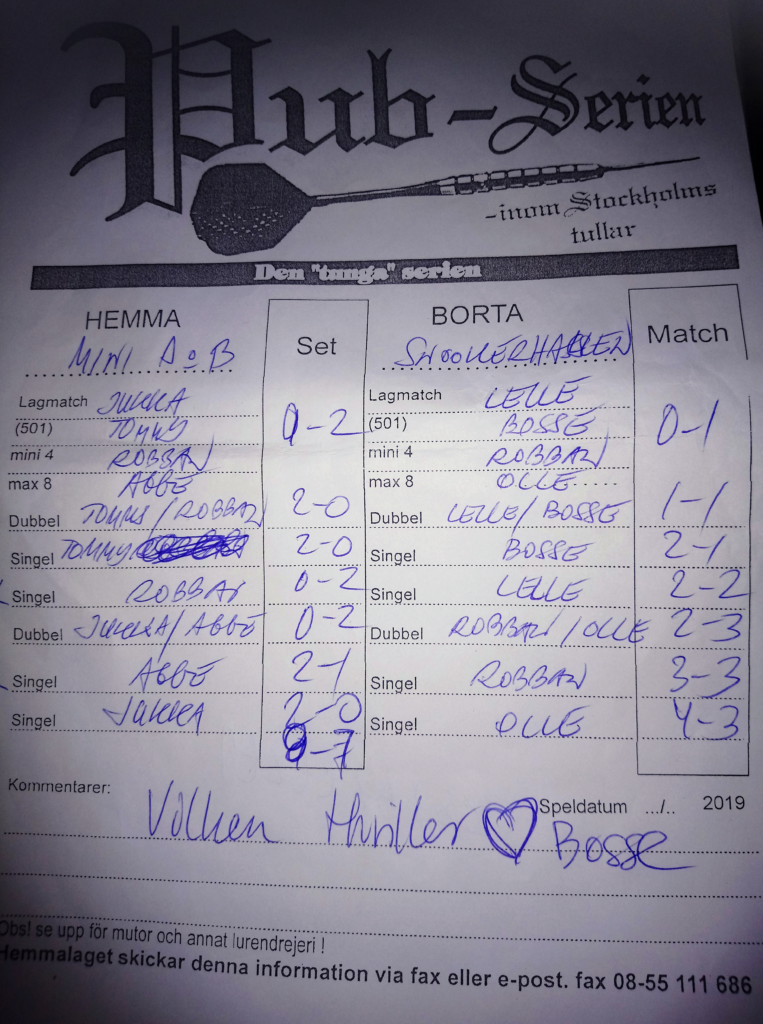 Pub-Serien
-inom Stockholms
tullar
Den "tunga" serien
HEMMA Set BORTA Match
MINI A o B SNOOKERHALLEN
Lagmatch JUKKA Lagmatch LELLE
(501) TOMMY 0-2 (501) BOSSE 0-1
mini 4 ROBBAN mini 4 ROBBAN
max 8 ABBE max 8 OLLE
Dubbel TOMMY/ROBBAN 2-0 Dubbel LELLE/BOSSE 1-1
Singel TOMMY 2-0 Singel BOSSE 2-1
Singel ROBBAN 0-2 Singel LELLE 2-2
Dubbel JUKKA/ABBE 0-2 Dubbel ROBBAN/OLLE 2-3
Singel ABBE 2-1 Singel ROBBAN 3-3
Singel JUKKA 2-0 Singel OLLE 4-3
-7
Kommentarer: Speldatum .../.. 2019
Vilken thriller ♡ Bosse
Obs! se upp för mutor och annat lurendrejeri !
Hemmalaget skickar denna information via fax eller e-post. fax 08-55 111 686